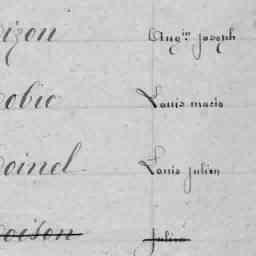 izon Augin Joseph
obic Louis marie
oinel Louis Julien
oison Julien